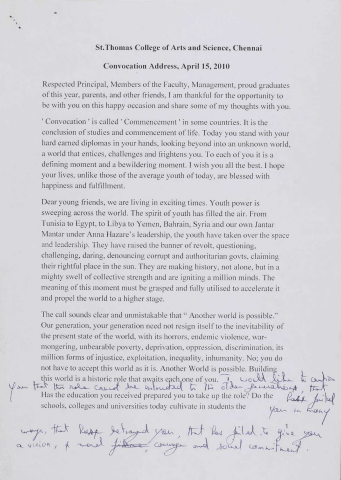 St.Thomas College of Arts and Science, Chennai
Convocation Address, April 15, 2010
Respected Principal, Members of the Faculty, Management, proud graduates
of this year, parents, and other friends, I am thankful for the opportunity to
be with you on this happy occasion and share some of my thoughts with you.
' Convocation ' is called ' Commencement ' in some countries. It is the
conclusion of studies and commencement of life. Today you stand with your
hard earned diplomas in your hands, looking beyond into an unknown world,
a world that entices, challenges and frightens you. To each of you it is a
defining moment and a bewildering moment. I wish you all the best. I hope
your lives, unlike those of the average youth of today, are blessed with
happiness and fulfillment.
Dear young friends, we are living in exciting times. Youth power is
sweeping across the world. The spirit of youth has filled the air. From
Tunisia to Egypt, to Libya to Yemen, Bahrain, Syria and our own Jantar
Mantar under Anna Hazare's leadership, the youth have taken over the space
and leadership. They have raised the banner of revolt, questioning,
challenging, daring, denouncing corrupt and authoritarian govts, claiming
their rightful place in the sun. They are making history, not alone, but in a
mighty swell of collective strength and are igniting a million minds. The
meaning of this moment must be grasped and fully utilised to accelerate it
and propel the world to a higher stage.
The call sounds clear and unmistakable that " Another world is possible."
Our generation, your generation need not resign itself to the inevitability of
the present state of the world, with its horrors, endemic violence, war-
mongering, unbearable poverty, deprivation, oppression, discrimination, its
million forms of injustice, exploitation, inequality, inhumanity. No; you do
not have to accept this world as it is. Another World is possible. Building
this world is a historic role that awaits each one of you. I would like to caution
you that this role cannot be entrusted to the older generations, that
Has the education you received prepared you to take up the role? Do the have failed
schools, colleges and universities today cultivate in students the you in many
ways, that have betrayed you, that has failed to give you
a vision, & moral courage and social commitment.